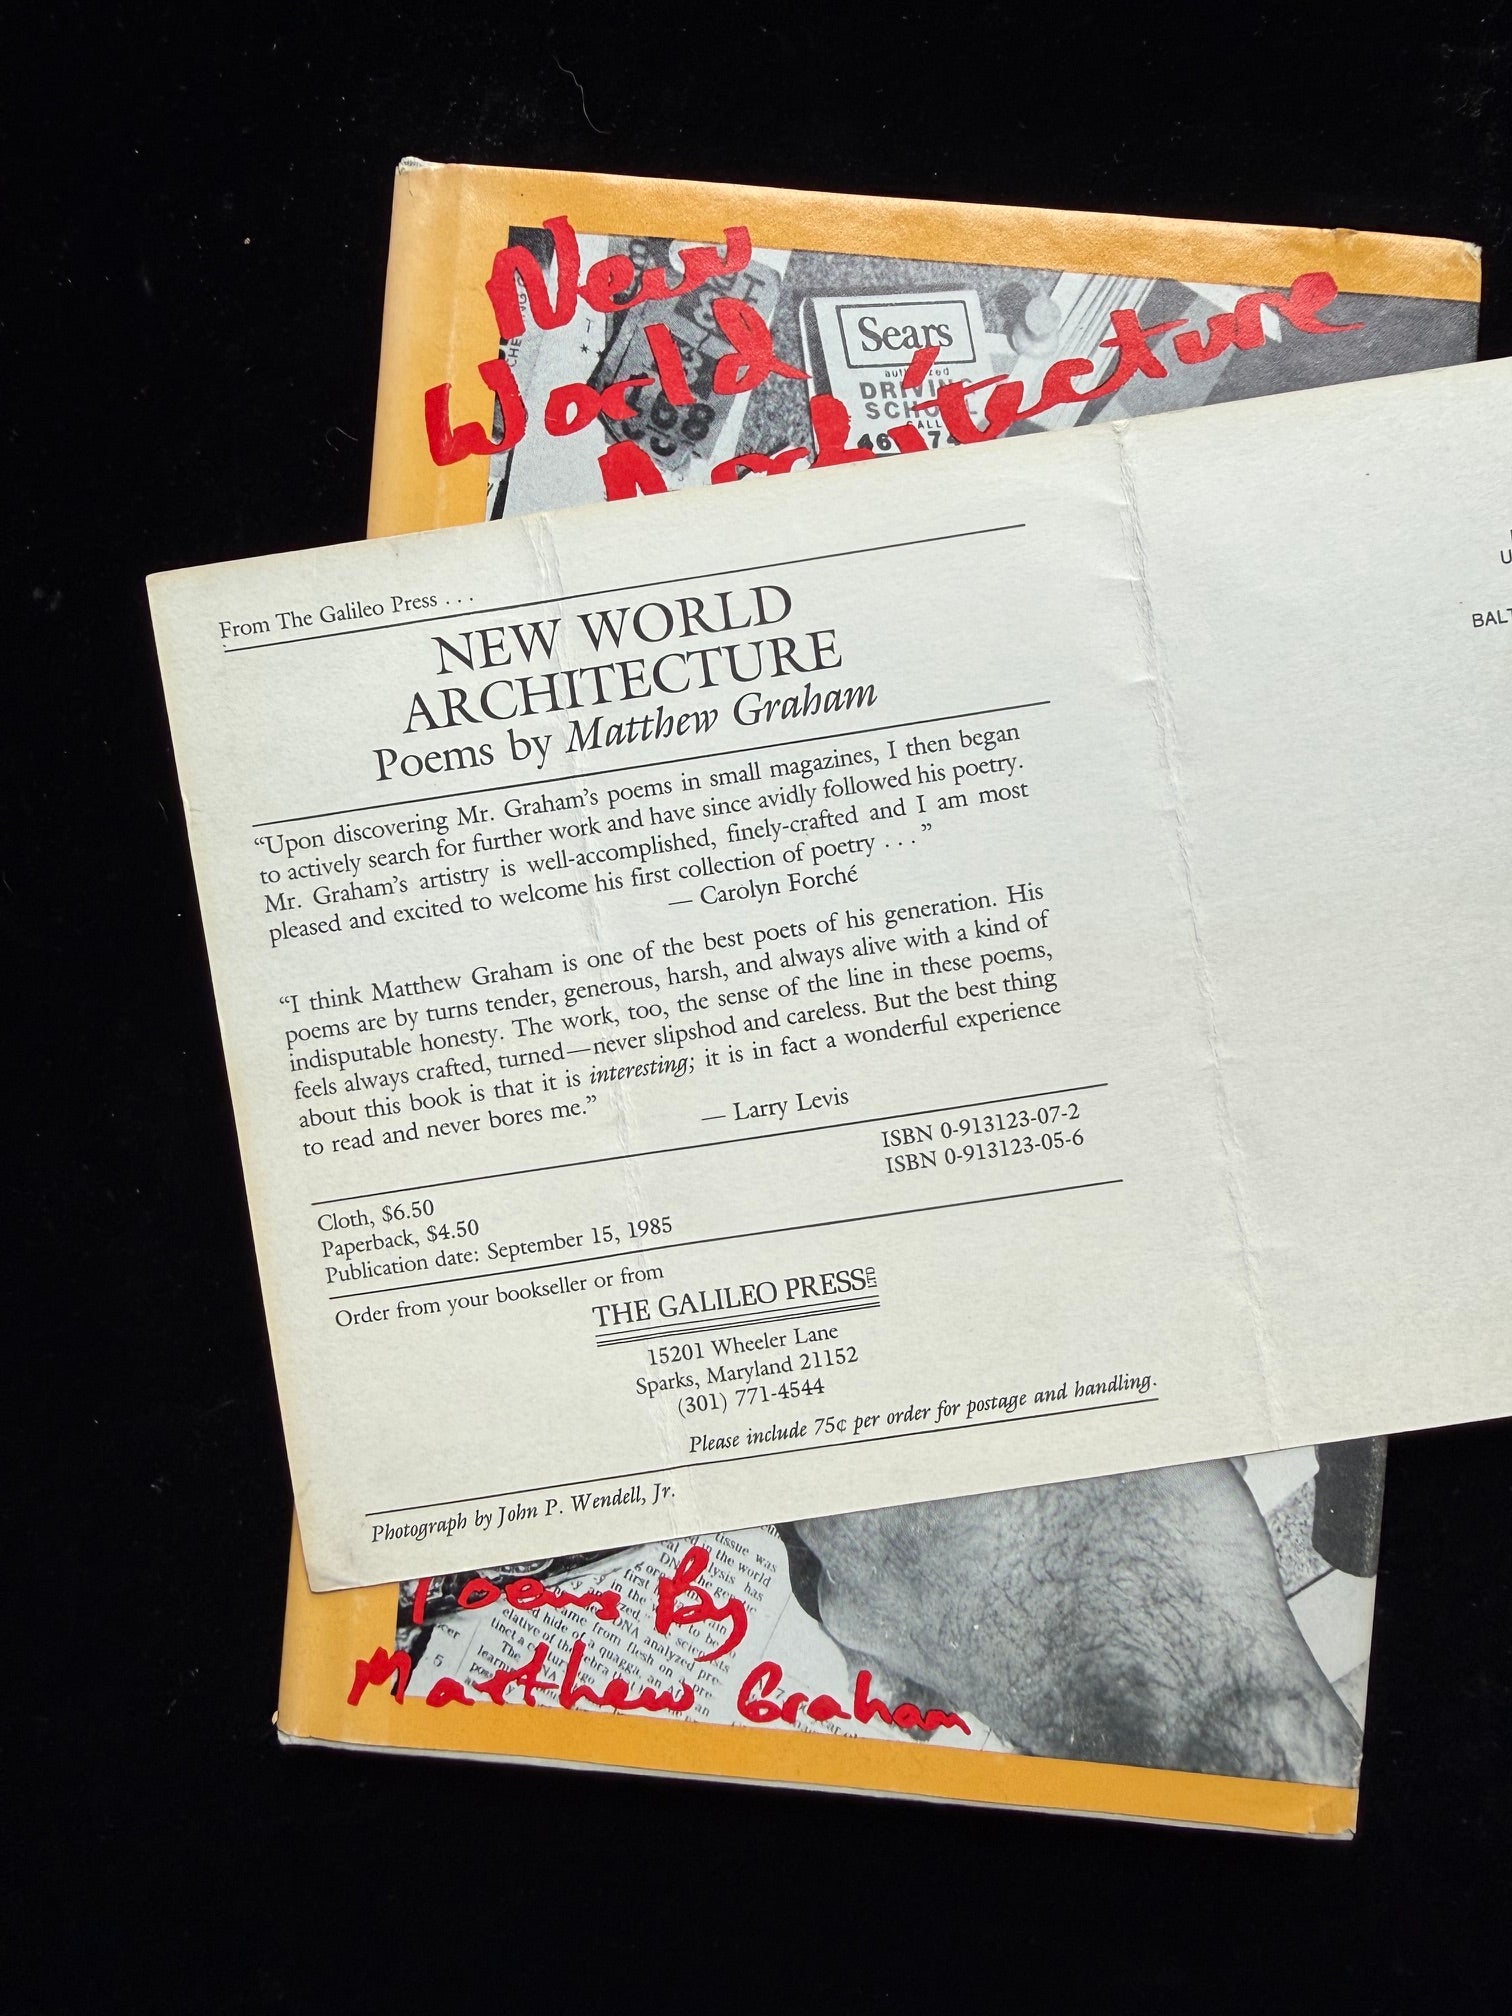 New
World
Architecture
Sears
authorized
DRIVING
SCHOOL
CALL
From The Galileo Press . . .
NEW WORLD
ARCHITECTURE
Poems by Matthew Graham
“Upon discovering Mr. Graham’s poems in small magazines, I then began
to actively search for further work and have since avidly followed his poetry.
Mr. Graham’s artistry is well-accomplished, finely-crafted and I am most
pleased and excited to welcome his first collection of poetry . . . ”
— Carolyn Forché
“I think Matthew Graham is one of the best poets of his generation. His
poems are by turns tender, generous, harsh, and always alive with a kind of
indisputable honesty. The work, too, the sense of the line in these poems,
feels always crafted, turned—never slipshod and careless. But the best thing
about this book is that it is interesting; it is in fact a wonderful experience
to read and never bores me.”
— Larry Levis
ISBN 0-913123-07-2
ISBN 0-913123-05-6
Cloth, $6.50
Paperback, $4.50
Publication date: September 15, 1985
Order from your bookseller or from
THE GALILEO PRESS LTD
15201 Wheeler Lane
Sparks, Maryland 21152
(301) 771-4544
Please include 75¢ per order for postage and handling.
Photograph by John P. Wendell, Jr.
BALT
Poems By
Matthew Graham
tissue was
in the world
DNA analyzed pre-
hide of a quagga, an